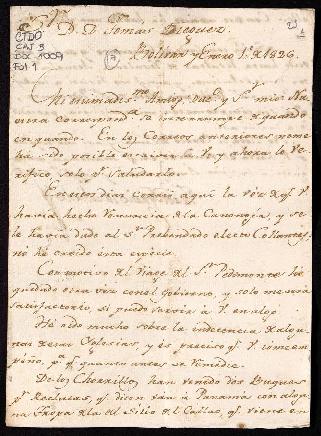 CTDO
CAJ 3
DOC 1009
Fol 1
23
Sor
D. D. Tomas Dieguez.
y Enero 1º. de 1826.
Mi mimadisimo Amigo, Dueño, y Sor. mio: Nu
estra correspondª. se interrumpe de quando
en quando. En los Correos anteriores no me
ha sido posible escrivir a V. y ahora lo ve
rifico, solo pª. Saludarlo.
En estos dias corrió aquí la voz de qe. V.
havia hecho renuncia de la Canongia, y se
le havia dado al Sor. Prebendado electo Collantes,
no he creido esta especie.
Con motivo del Viage del Sor. Pedemonte ha
quedado otra vez con el Gobierno, y solo me sería
satisfactorio, si puedo servir à V. en algo.
He oido mucho sobre la indecencia de algu
nas de esas Iglesias, y es preciso qe. V. tome em
peño, pª. qe. quanto antes se remedie.
De los Chorrillos han venido dos Buques
de Reclutas, qe. dicen van à Panamá con algu
na Tropa de la del Sitio del Callao, qe. viene en